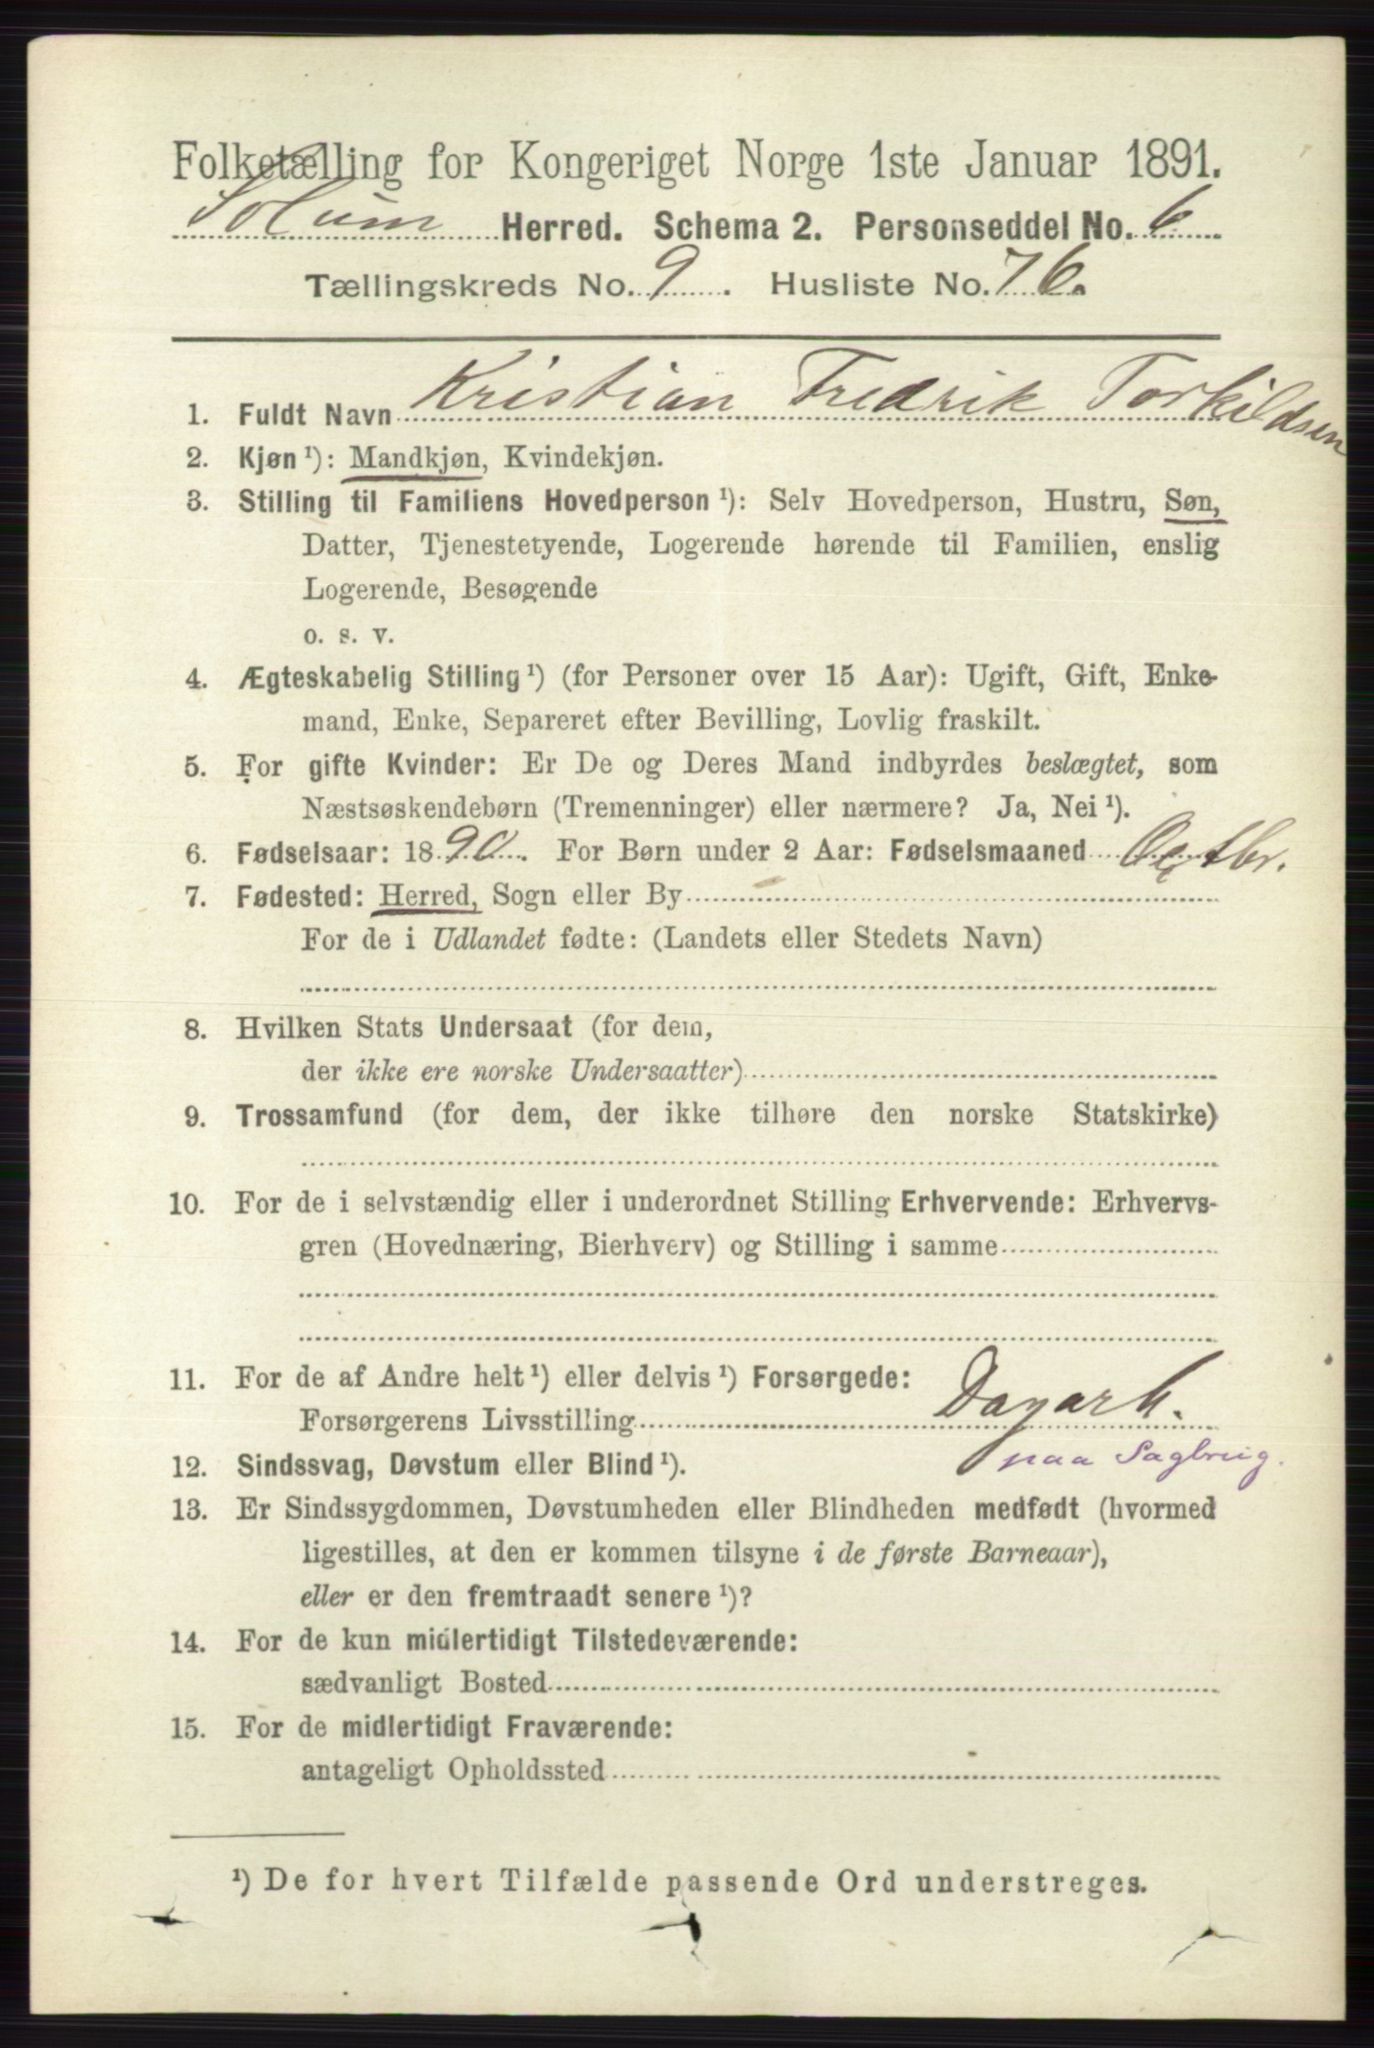 Folketælling for Kongeriget Norge 1ste Januar 1891.
Solum Herred. Schema 2. Personseddel No. 6
Tællingskreds No. 9. Husliste No. 76.
1. Fuldt Navn Kristian Fredrik Torkildsen
2. Kjøn ¹): Mandkjøn, Kvindekjøn.
3. Stilling til Familiens Hovedperson ¹): Selv Hovedperson, Hustru, Søn,
Datter, Tjenestetyende, Logerende hørende til Familien, enslig
Logerende, Besøgende
o. s. v.
4. Ægteskabelig Stilling ¹) (for Personer over 15 Aar): Ugift, Gift, Enke-
mand, Enke, Separeret efter Bevilling, Lovlig fraskilt.
5. For gifte Kvinder: Er De og Deres Mand indbyrdes beslægtet, som
Næstsøskendebørn (Tremenninger) eller nærmere? Ja, Nei ¹).
6. Fødselsaar: 1890. For Børn under 2 Aar: Fødselsmaaned
7. Fødested: Herred, Sogn eller By
For de i Udlandet fødte: (Landets eller Stedets Navn)
8. Hvilken Stats Undersaat (for dem,
der ikke ere norske Undersaatter)
9. Trossamfund (for dem, der ikke tilhøre den norske Statskirke)
10. For de i selvstændig eller i underordnet Stilling Erhvervende: Erhvervs-
gren (Hovednæring, Bierhverv) og Stilling i samme
11. For de af Andre helt ¹) eller delvis ¹) Forsørgede:
Forsørgerens Livsstilling Dagarb.
paa Sagbrug.
12. Sindssvag, Døvstum eller Blind ¹).
13. Er Sindssygdommen, Døvstumheden eller Blindheden medfødt (hvormed
ligestilles, at den er kommen tilsyne i de første Barneaar),
eller er den fremtraadt senere ¹)?
14. For de kun midlertidigt Tilstedeværende:
sædvanligt Bosted
15. For de midlertidigt Fraværende:
antageligt Opholdssted
¹) De for hvert Tilfælde passende Ord understreges.